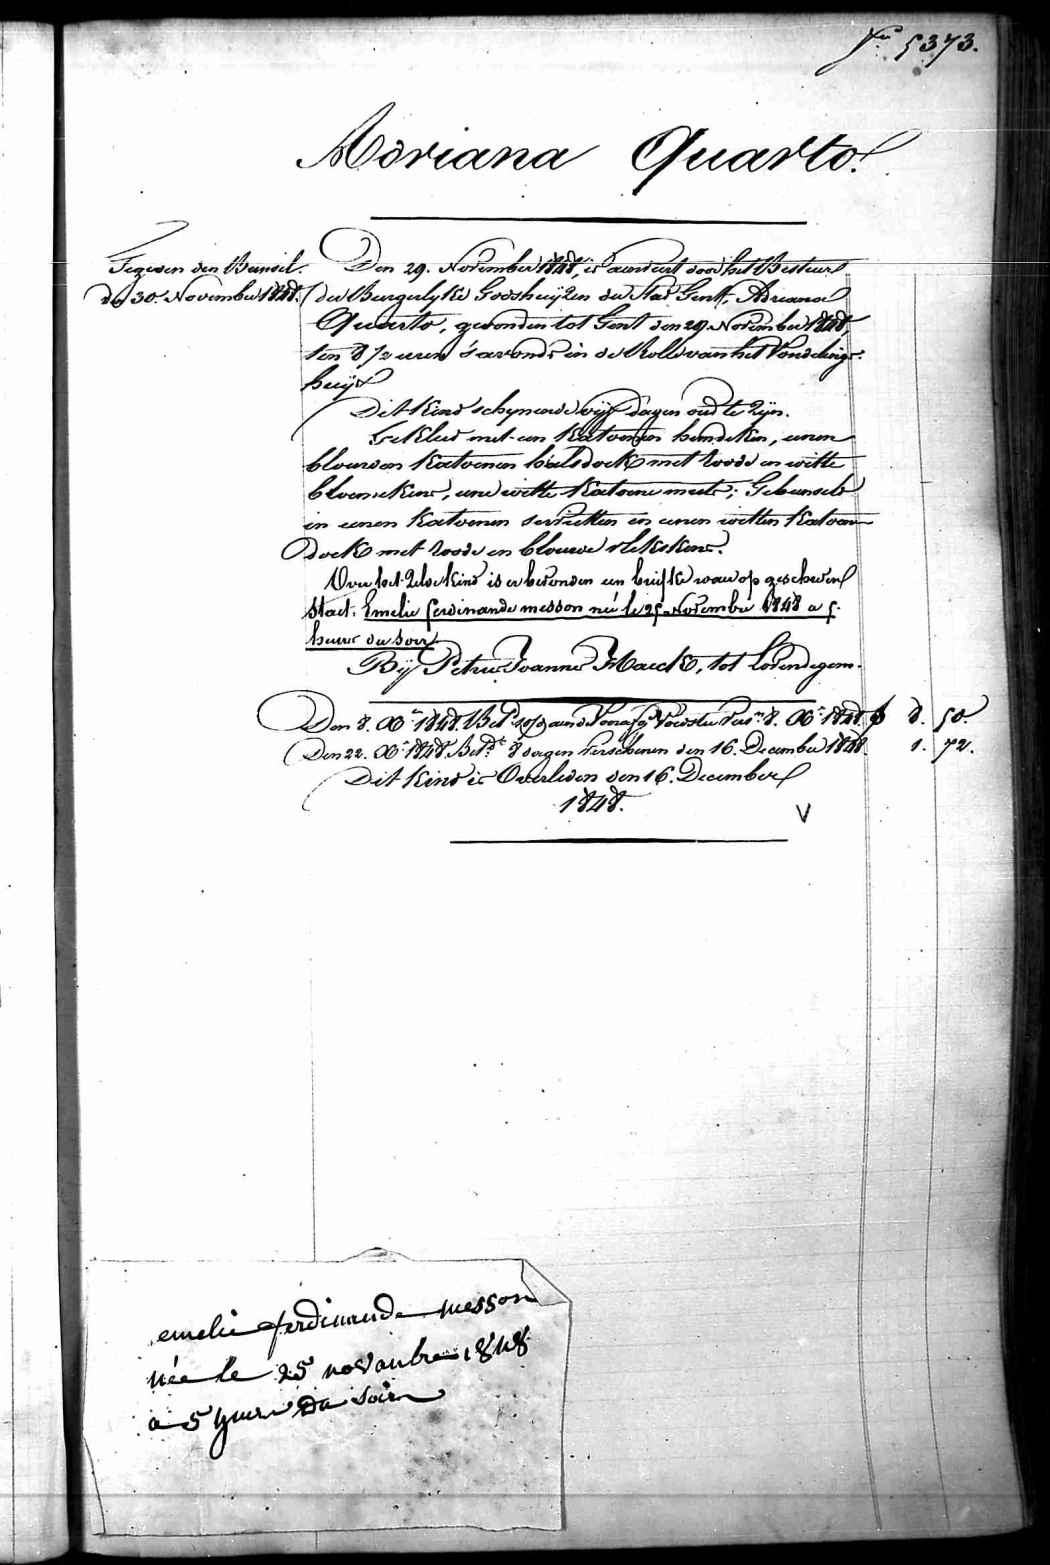 Fº 5373.
Adriana Quarto.
Gegeven den Bunsel.
den 30. November 1848.
Den 29. November 1848, is aenveert door het Bestuer
der Burgerlyke Godshuyzen der Stad Gent, Adriana
Quarto, gevonden tot Gent den 29 November 1848,
ten 8 1/2 uren 's avonds in de Rolle van het Vondelings-
huys
Dit kind schynende vyf dagen oud te zyn.
Gekleed met een katoenen hemdeken, eenen
blauwen katoenen halsdoek met roode en witte
bloemekens, eene witte katoene muts; Gebunseld
in eenen katoenen servietten en eenen witten katoen
doek met roode en blauwe plekskens.
Over het zelve kind is er bevonden een briefke waer op geschreven
staet. Emelie ferdinande messon née le 25 November 1848 a 5.
heure du soir
By Petrus Joannes Maeck, tot Lovendegem.
Den 8. Xbre 1848. Betd aen de Voedster 8. Xbre 1848. 8. 50.
Den 22. Xbre 1848. Betd 8 dagen verschenen den 16. December 1848. 1. 72.
Dit kind is Overleden den 16. December
1848.
V
emelie ferdinande messon
née le 25 novanbre 1848
a 5 hure du soire